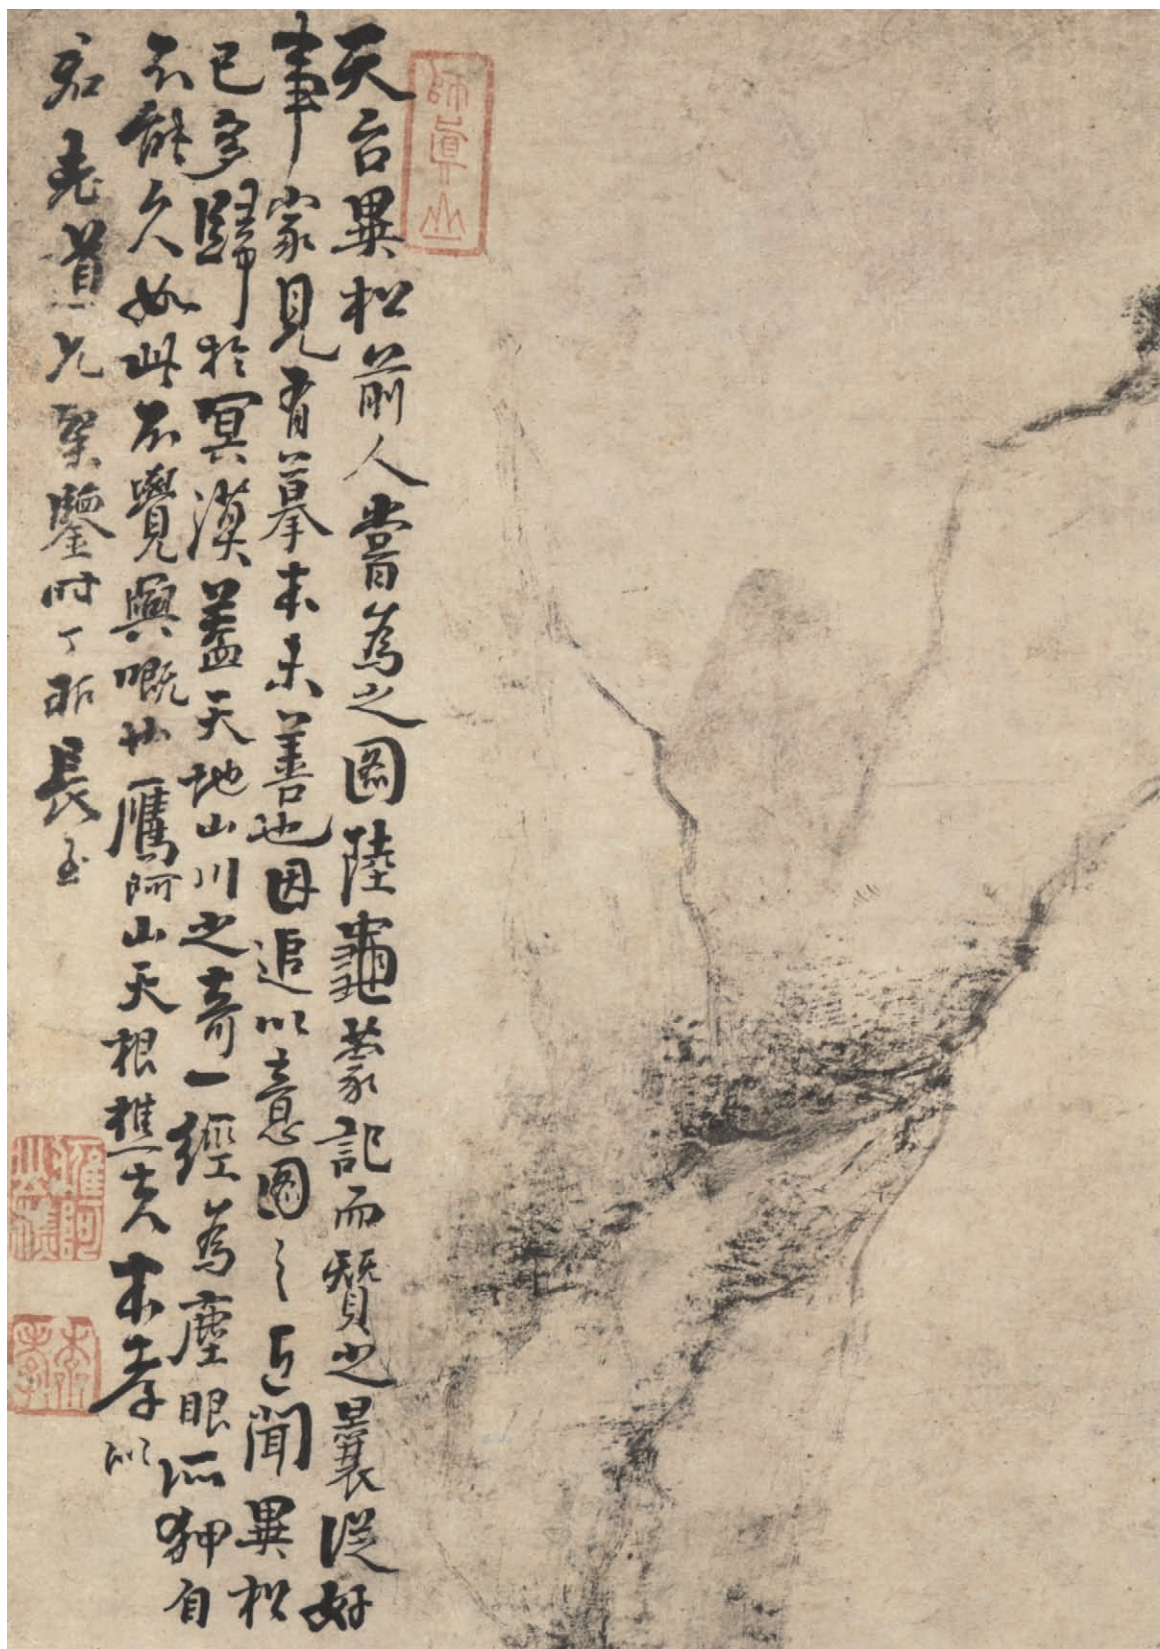 師真山
天台異松前人嘗為之圖陸龜蒙記而贊之曩從好
事家見有摹本未善也因追以意圖之近聞異松
已多歸於冥漠蓋天地山川之奇一經為塵眼所狎自
不能久如此不覺興嘅也鴈阿山天根樵夫本孝以
老道兄 鑒時丁卯長至
本孝